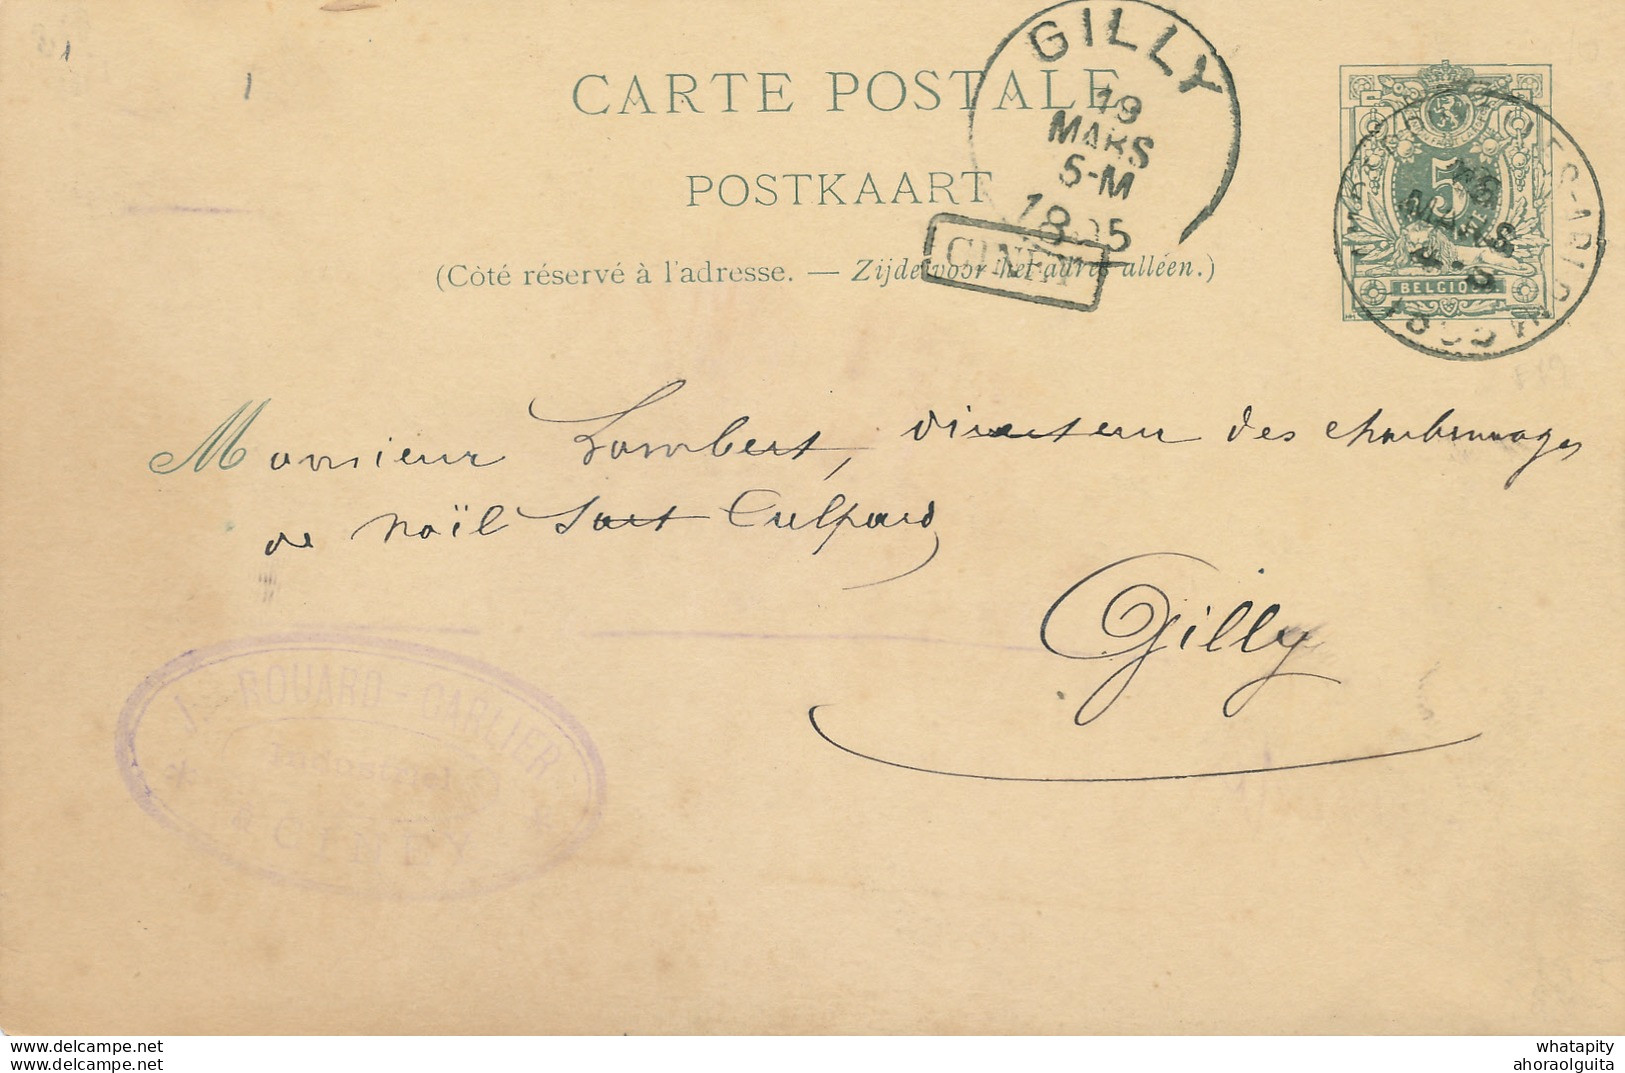 GILLY
CARTE POSTALE
19
MARS
5-M
1895
POSTKAART
5
CINEY
(Côté réservé à l'adresse. — Zijde voor het adres alléen.)
BELGIQUE
Monsieur Lambert, directeur des charbonnages
de Noël Sart Culpard
Gilly
J. ROUARD-CARLIER
Industriel
CINEY
www.delcampe.com
www.delcampe.net
whatapity
ahoraolguita